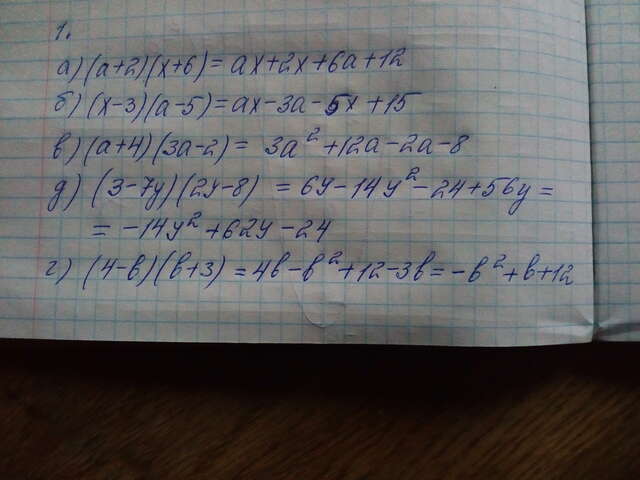 1.
а) (a+2)(x+6) = ax+2x+6a+12
б) (x-3)(a-5) = ax-3a-5x+15
в) (a+4)(3a-2) = 3a²+12a-2a-8
д) (3-7y)(2y-8) = 6y-14y²-24+56y =
= -14y²+62y-24
г) (4-b)(b+3) = 4b-b²+12-3b = -b²+b+12